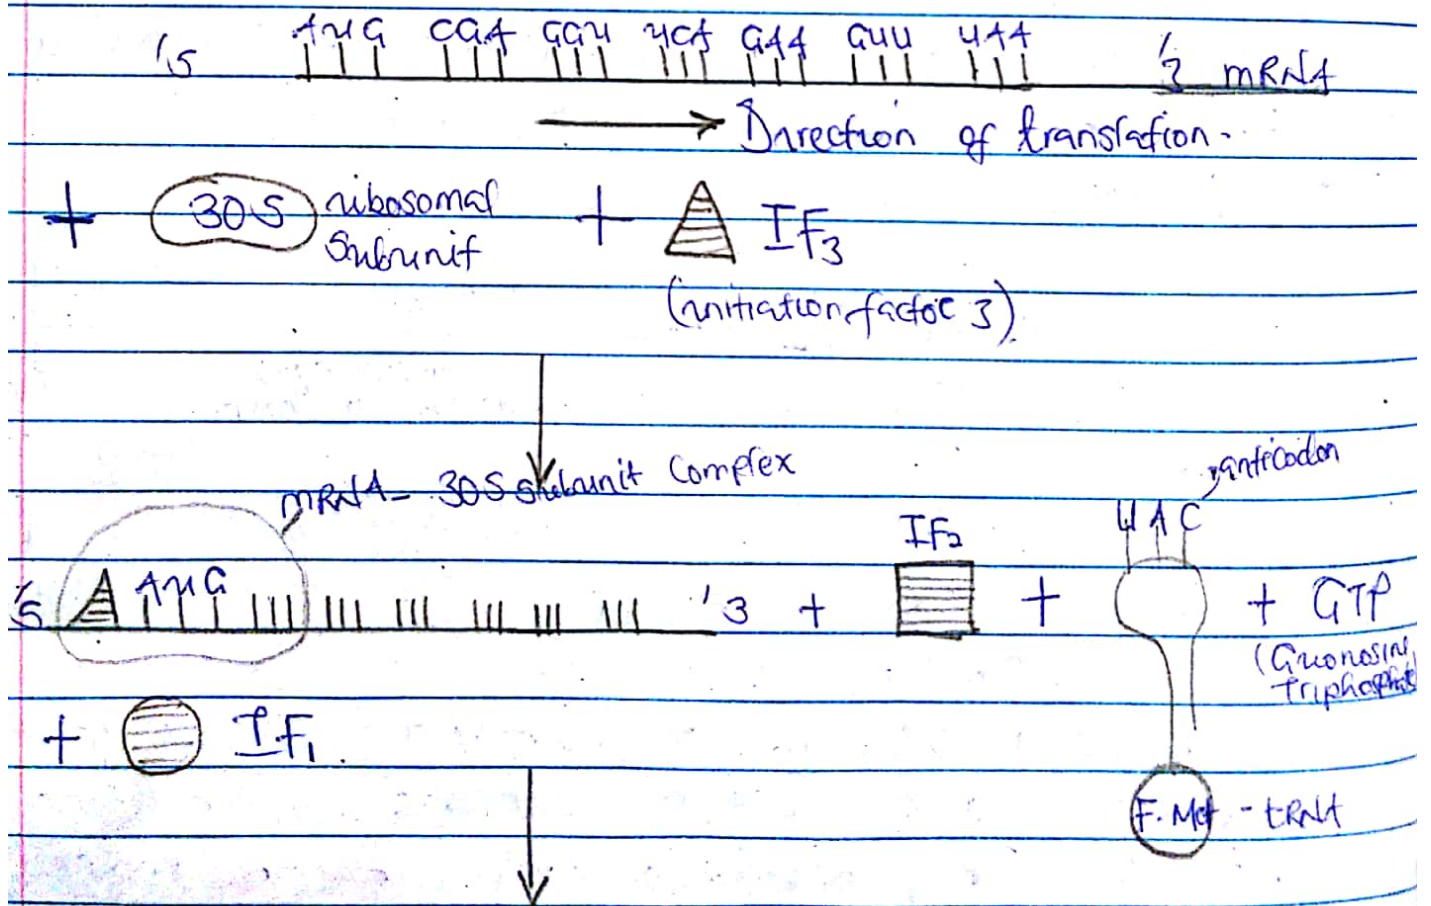 '5 AUG CGA GGU UCA GAA GUU UAA '3 mRNA
Direction of translation.
+ 30S ribosomal subunit + IF3
(initiation factor 3)
mRNA - 30S subunit complex
anticodon
UAC
IF2
'5 AUG '3 + + + GTP
(Guonosine
Triphosphate
+ IF1.
F. Met - tRNA